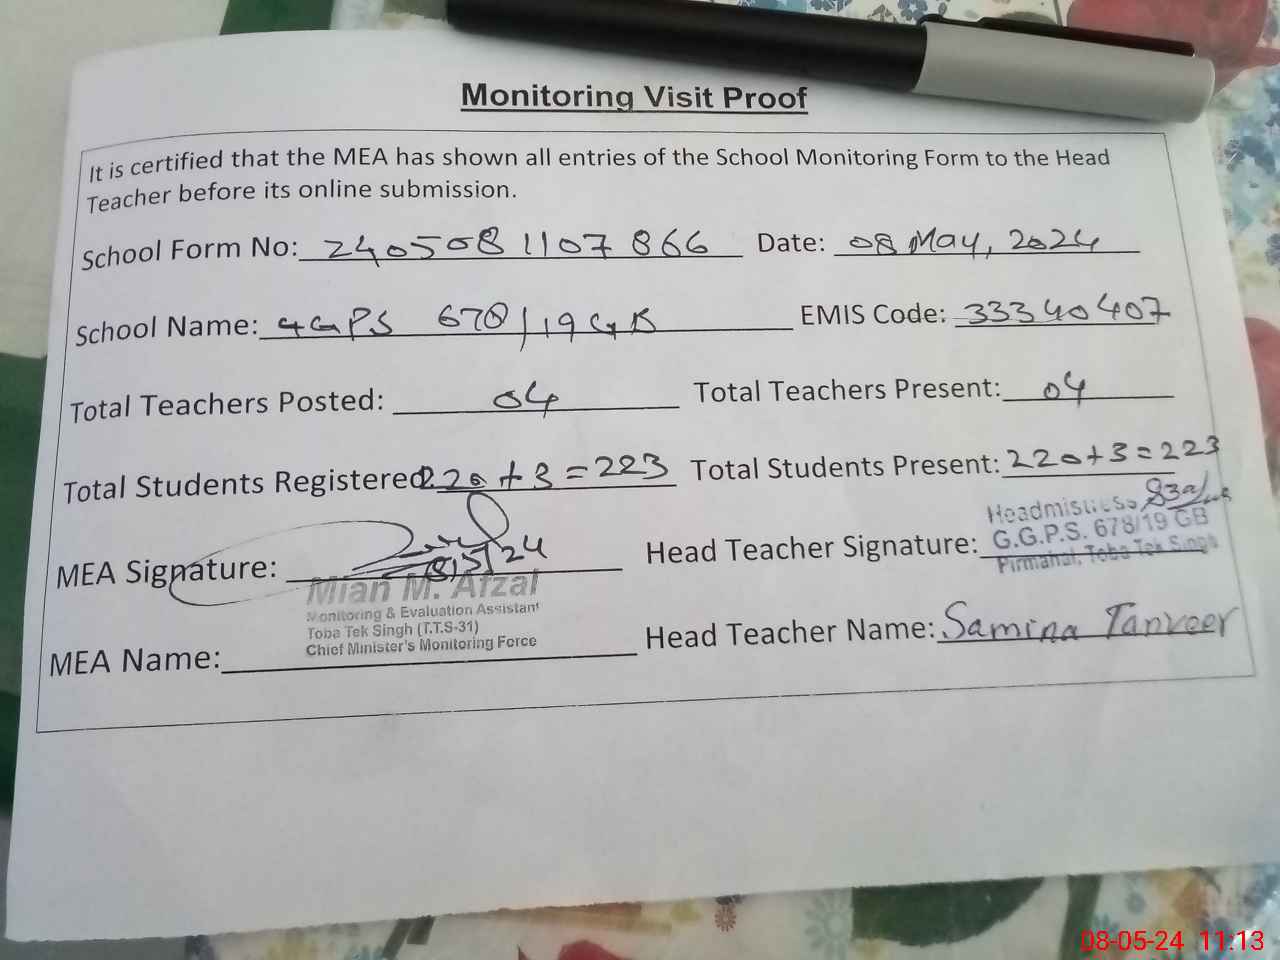 Monitoring Visit Proof
It is certified that the MEA has shown all entries of the School Monitoring Form to the Head
Teacher before its online submission.
School Form No: 2405081107866 Date: 08 May, 2024
School Name: GGPS 678/19 GB EMIS Code: 33340407
Total Teachers Posted: 04 Total Teachers Present: 04
Total Students Registered: 220+3=223 Total Students Present: 220+3=223
MEA Signature: 8/5/24 Head Teacher Signature: Headmistress
G.G.P.S. 678/19 GB
Pirmahal, Toba Tek Singh
Mian M. Afzal
Monitoring & Evaluation Assistant
Toba Tek Singh (T.T.S-31)
Chief Minister's Monitoring Force
MEA Name: Head Teacher Name: Samina Tanveer
08-05-24 11:13